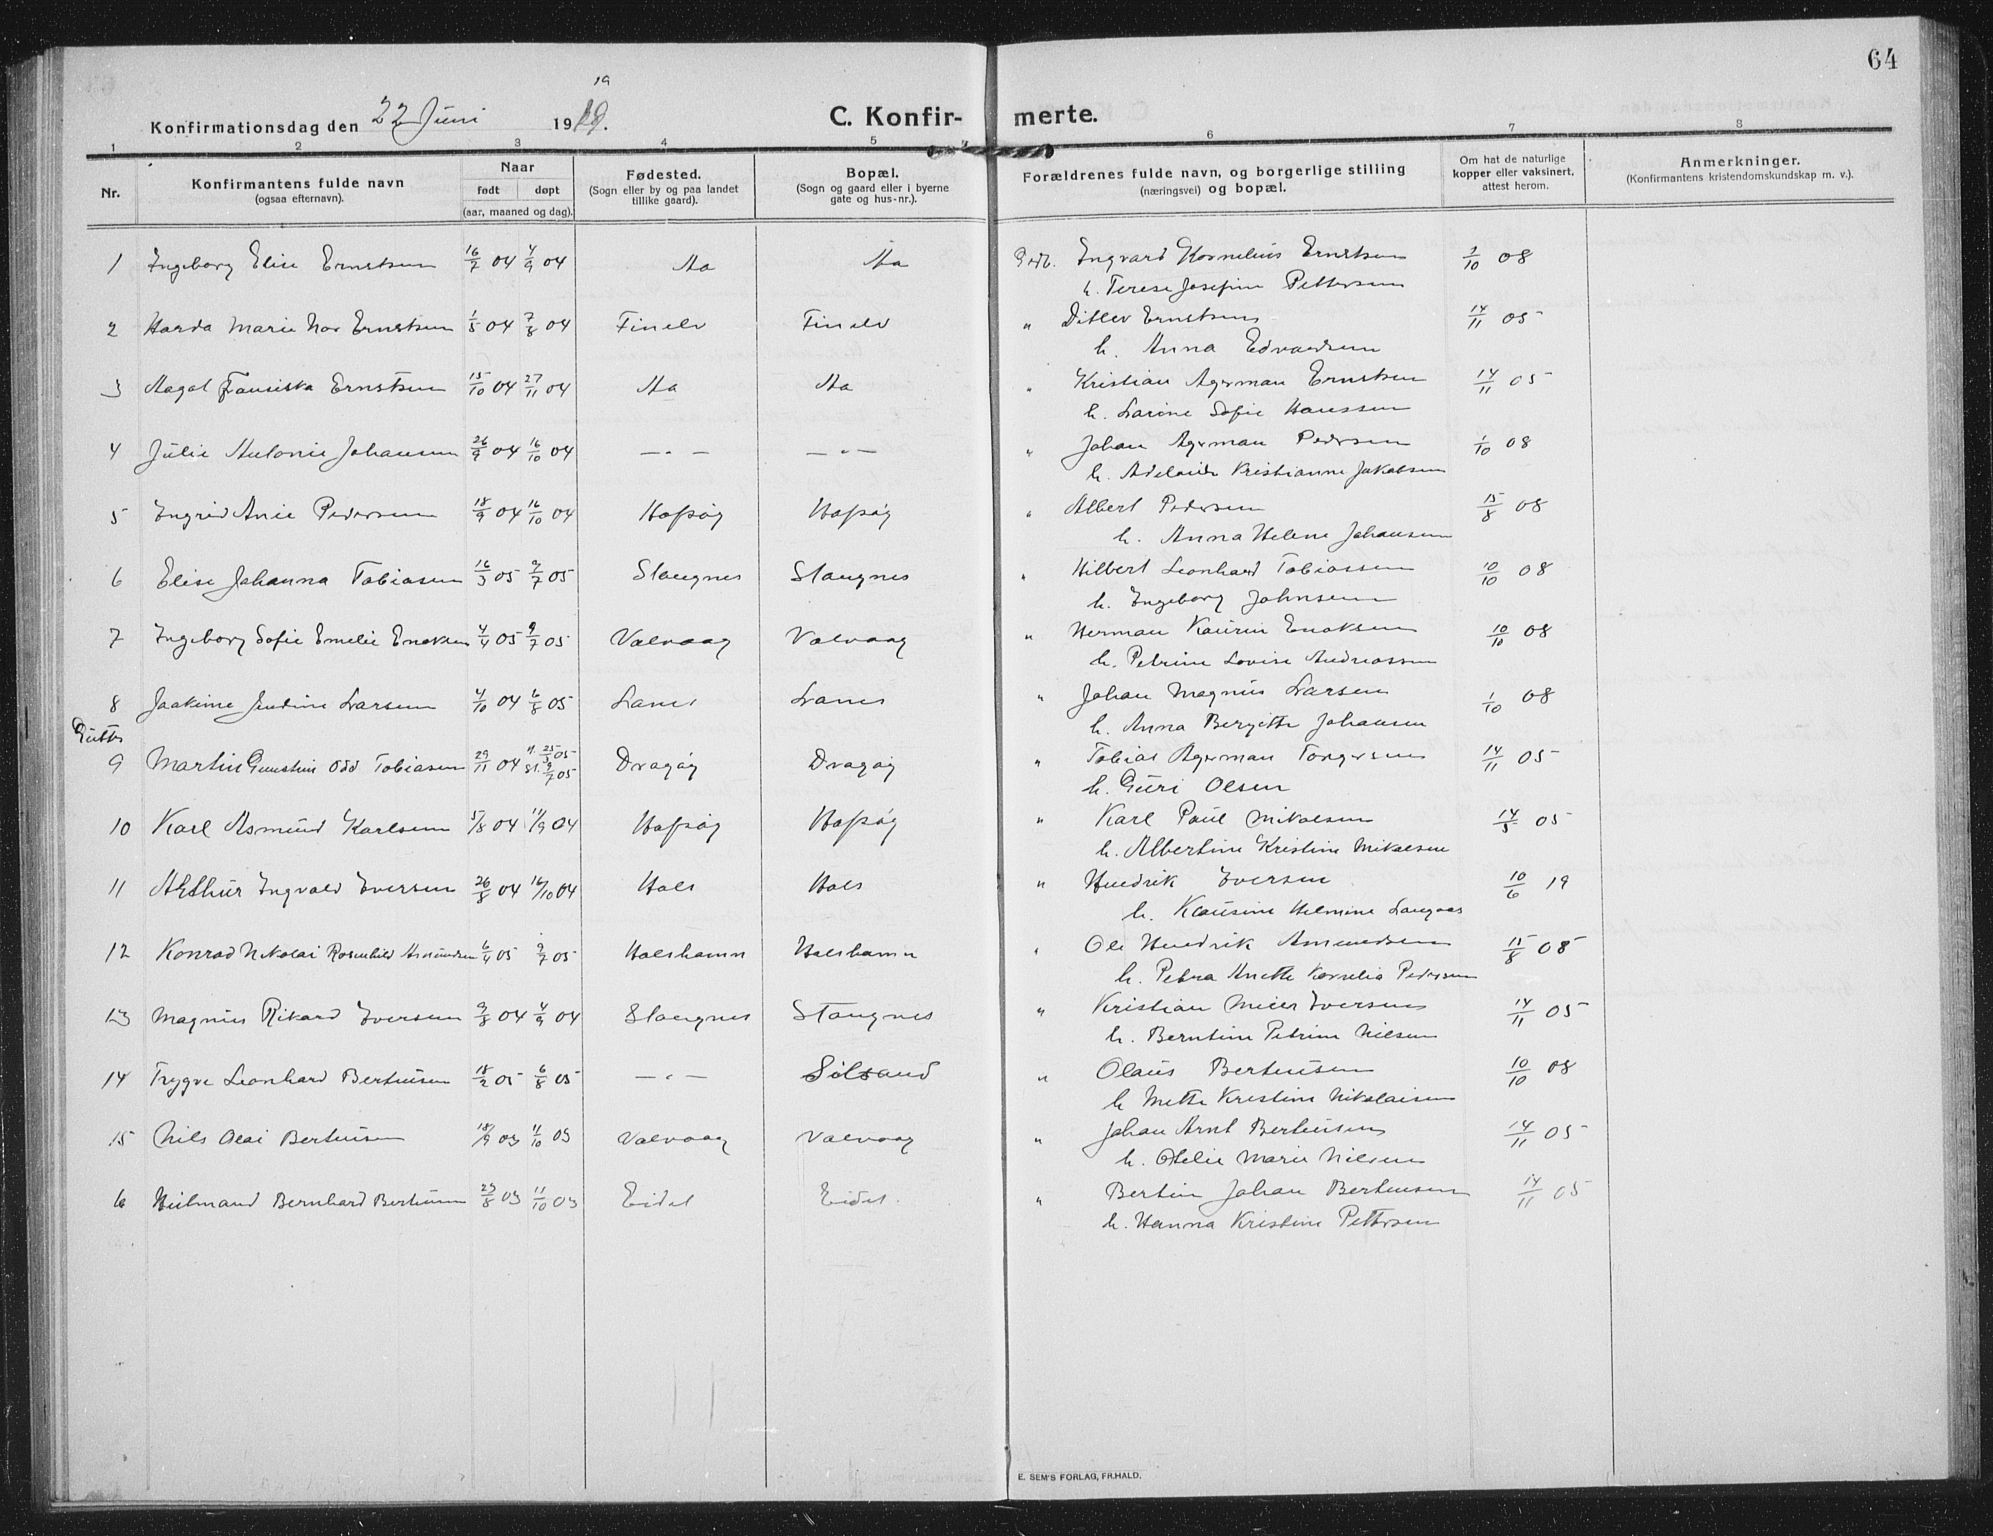 64
19
Konfirmationsdag den 22 Juni 19
C. Konfir- merte.
1 2 3 4 5 6 7 8
Nr.
Konfirmantens fulde navn
(ogsaa efternavn).
Naar
født døpt
(aar, maaned og dag).
Fødested.
(Sogn eller by og paa landet
tillike gaard).
Bopæl.
(Sogn og gaard eller i byerne
gate og hus-nr.).
Forældrenes fulde navn, og borgerlige stilling
(næringsvei) og bopæl.
Om hat de naturlige
kopper eller vaksinert,
attest herom.
Anmerkninger.
(Konfirmantens kristendomskundskap m. v.).
1 Ingeborg Elise Ernstsen 16/7 04 4/9 04 Aa Aa Ingvard Kornelius Ernstsen 1/10 08
h. Terese Josefine Pettersen
2 Marie Ernstsen 1/5 04 7/8 04 Finelv Finelv " Ditlev Ernstsen 14/11 05
h. Anna Edvardsen
3 Aagot Fansiska Ernstsen 15/10 04 27/11 04 Aa Aa " Kristian Agerman Ernstsen 14/11 05
h. Larine Sofie Hanssen
4 Julie Antonie Johansen 26/9 04 16/10 04 — " — — " — " Johan Agerman Pedersen 1/10 08
h. Adelaide Kristianne Jakobsen
5 Ingrid Anie Pedersen 18/9 04 16/10 04 Hofsøy Hofsøy " Albert Pedersen 15/8 08
h. Anna Helene Johansen
6 Elise Johanna Tobiasen 16/3 05 9/7 05 Stangnes Stangnes " Hilbert Leonhard Tobiassen 10/10 08
h. Ingeborg Johnsen
7 Ingeborg Sofie Emelie Enoksen 4/4 05 9/7 05 Valvaag Valvaag " Herman Kaurin Enoksen 10/10 08
h. Petrine Lovise Andreassen
8 Joakime Jendine Larsen 4/10 04 6/8 05 Lanes Lanes " Johan Magnus Larsen 1/10 08
h. Anna Bergitte Johansen
Gutter
9 Martin Odd Tobiasen 29/11 04 25/3 05 9/7 05 Dragøy Dragøy " Tobias Agerman Torgersen 14/11 05
h. Guri Olsen
10 Karl Asmund Karlsen 5/8 04 11/9 04 Hofsøy Hofsøy " Karl Paul Mikalsen 14/5 05
h. Albertine Kristine Mikalsen
11 Arthur Ingvald Iversen 26/8 04 16/10 04 Hals Hals " Hendrik Iversen 10/6 19
h. Klausine Helmine Langaas
12 Konrad Nikolai Rosenhild Asmundsen 6/4 05 9/7 05 Halshamn Halshamn " Ole Hendrik Asmundsen 15/8 08
h. Petra Anette Kornelia Pedersen
13 Magnus Rikard Iversen 9/8 04 4/9 04 Stangnes Stangnes " Kristian Meier Iversen 14/11 05
h. Berntine Petrine Nilsen
14 Trygve Leonhard Bertheusen 18/2 05 6/8 05 — " — Silsand " Olaus Bertheusen 10/10 08
h Mette Kristine Nikolaisen
15 Nils Olai Bertheusen 18/9 03 11/10 03 Valvaag Valvaag " Johan Arnt Bertheusen 14/11 05
h. Otelie Marie Nielsen
6 Hilmand Bernhard Bertheusen 23/8 03 11/10 03 Eidet Eidet " Bertin Johan Bertheusen 14/11 05
h. Hanna Kristine Pettersen
E. SEM'S FORLAG, FR.HALD.